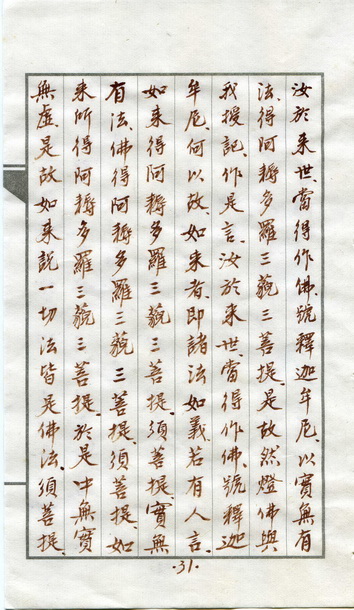 汝於来世、當得作佛、號釋迦牟尼、以實無有
法、得阿耨多羅三藐三菩提、是故然燈佛與
我授記、作是言、汝於来世、當得作佛、號釋迦
牟尼、何以故、如来者、即諸法如義、若有人言、
如来得阿耨多羅三藐三菩提、須菩提、實無
有法、佛得阿耨多羅三藐三菩提、須菩提、如
来所得阿耨多羅三藐三菩提、於是中無實
無虛、是故如来說一切法、皆是佛法、須菩提、
·31·